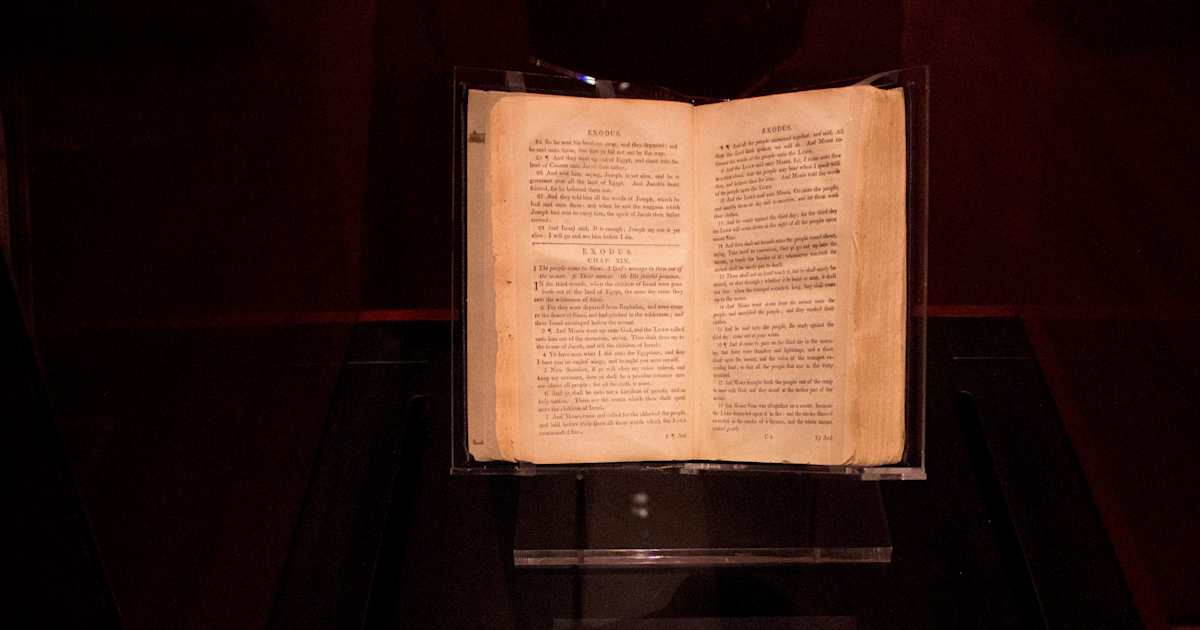 EXODUS.
24 So he sent his brethren away, and they departed : and
he said unto them, See that ye fall not out by the way.
25 ¶ And they went up out of Egypt, and came into the
land of Canaan unto Jacob their father,
26 And told him, saying, Joseph is yet alive, and he is
governor over all the land of Egypt. And Jacob's heart
fainted, for he believed them not.
27 And they told him all the words of Joseph, which he
had said unto them : and when he saw the waggons which
Joseph had sent to carry him, the spirit of Jacob their father
revived :
28 And Israel said, It is enough ; Joseph my son is yet
alive : I will go and see him before I die.
EXODUS.
CHAP. XIX.
1 The people come to Sinai. 3 God's message to them out of
the mount. 8 Their answer. 16 His fearful presence.
IN the third month, when the children of Israel were gone
forth out of the land of Egypt, the same day came they
into the wilderness of Sinai.
2 For they were departed from Rephidim, and were come
to the desert of Sinai, and had pitched in the wilderness ; and
there Israel encamped before the mount.
3 ¶ And Moses went up unto God, and the LORD called
unto him out of the mountain, saying, Thus shalt thou say to
the house of Jacob, and tell the children of Israel ;
4 Ye have seen what I did unto the Egyptians, and how
I bare you on eagles' wings, and brought you unto myself.
5 Now therefore, if ye will obey my voice indeed, and
keep my covenant, then ye shall be a peculiar treasure unto
me above all people : for all the earth is mine.
6 And ye shall be unto me a kingdom of priests, and an
holy nation. These are the words which thou shalt speak
unto the children of Israel.
7 And Moses came and called for the elders of the people,
and laid before their faces all these words which the LORD
commanded him.
8 ¶ And
EXODUS.
8 ¶ And all the people answered together, and said, All
that the Lord hath spoken, we will do. And Moses re-
turned the words of the people unto the LORD.
9 And the LORD said unto Moses, Lo, I come unto thee
in a thick cloud, that the people may hear when I speak with
thee, and believe thee for ever. And Moses told the words
of the people unto the LORD.
10 And the LORD said unto Moses, Go unto the people,
and sanctify them to day and to-morrow, and let them wash
their clothes,
11 And be ready against the third day ; for the third day
the LORD will come down in the sight of all the people upon
mount Sinai.
12 And thou shalt set bounds unto the people round about,
saying, Take heed to yourselves, that ye go not up into the
mount, or touch the border of it : whosoever toucheth the
mount shall be surely put to death :
13 There shall not an hand touch it, but he shall surely be
stoned, or shot through ; whether it be beast or man, it shall
not live : when the trumpet soundeth long, they shall come
up to the mount.
14 And Moses went down from the mount unto the
people, and sanctified the people ; and they washed their
clothes.
15 And he said unto the people, Be ready against the
third day : come not at your wives.
16 ¶ And it came to pass on the third day in the morn-
ing, that there were thunders and lightnings, and a thick
cloud upon the mount, and the voice of the trumpet ex-
ceeding loud ; so that all the people that was in the camp
trembled.
17 And Moses brought forth the people out of the camp
to meet with God, and they stood at the nether part of the
mount.
18 And Mount Sinai was altogether on a smoke, because
the LORD descended upon it in fire : and the smoke thereof
ascended as the smoke of a furnace, and the whole mount
quaked greatly.
C 4
19 And